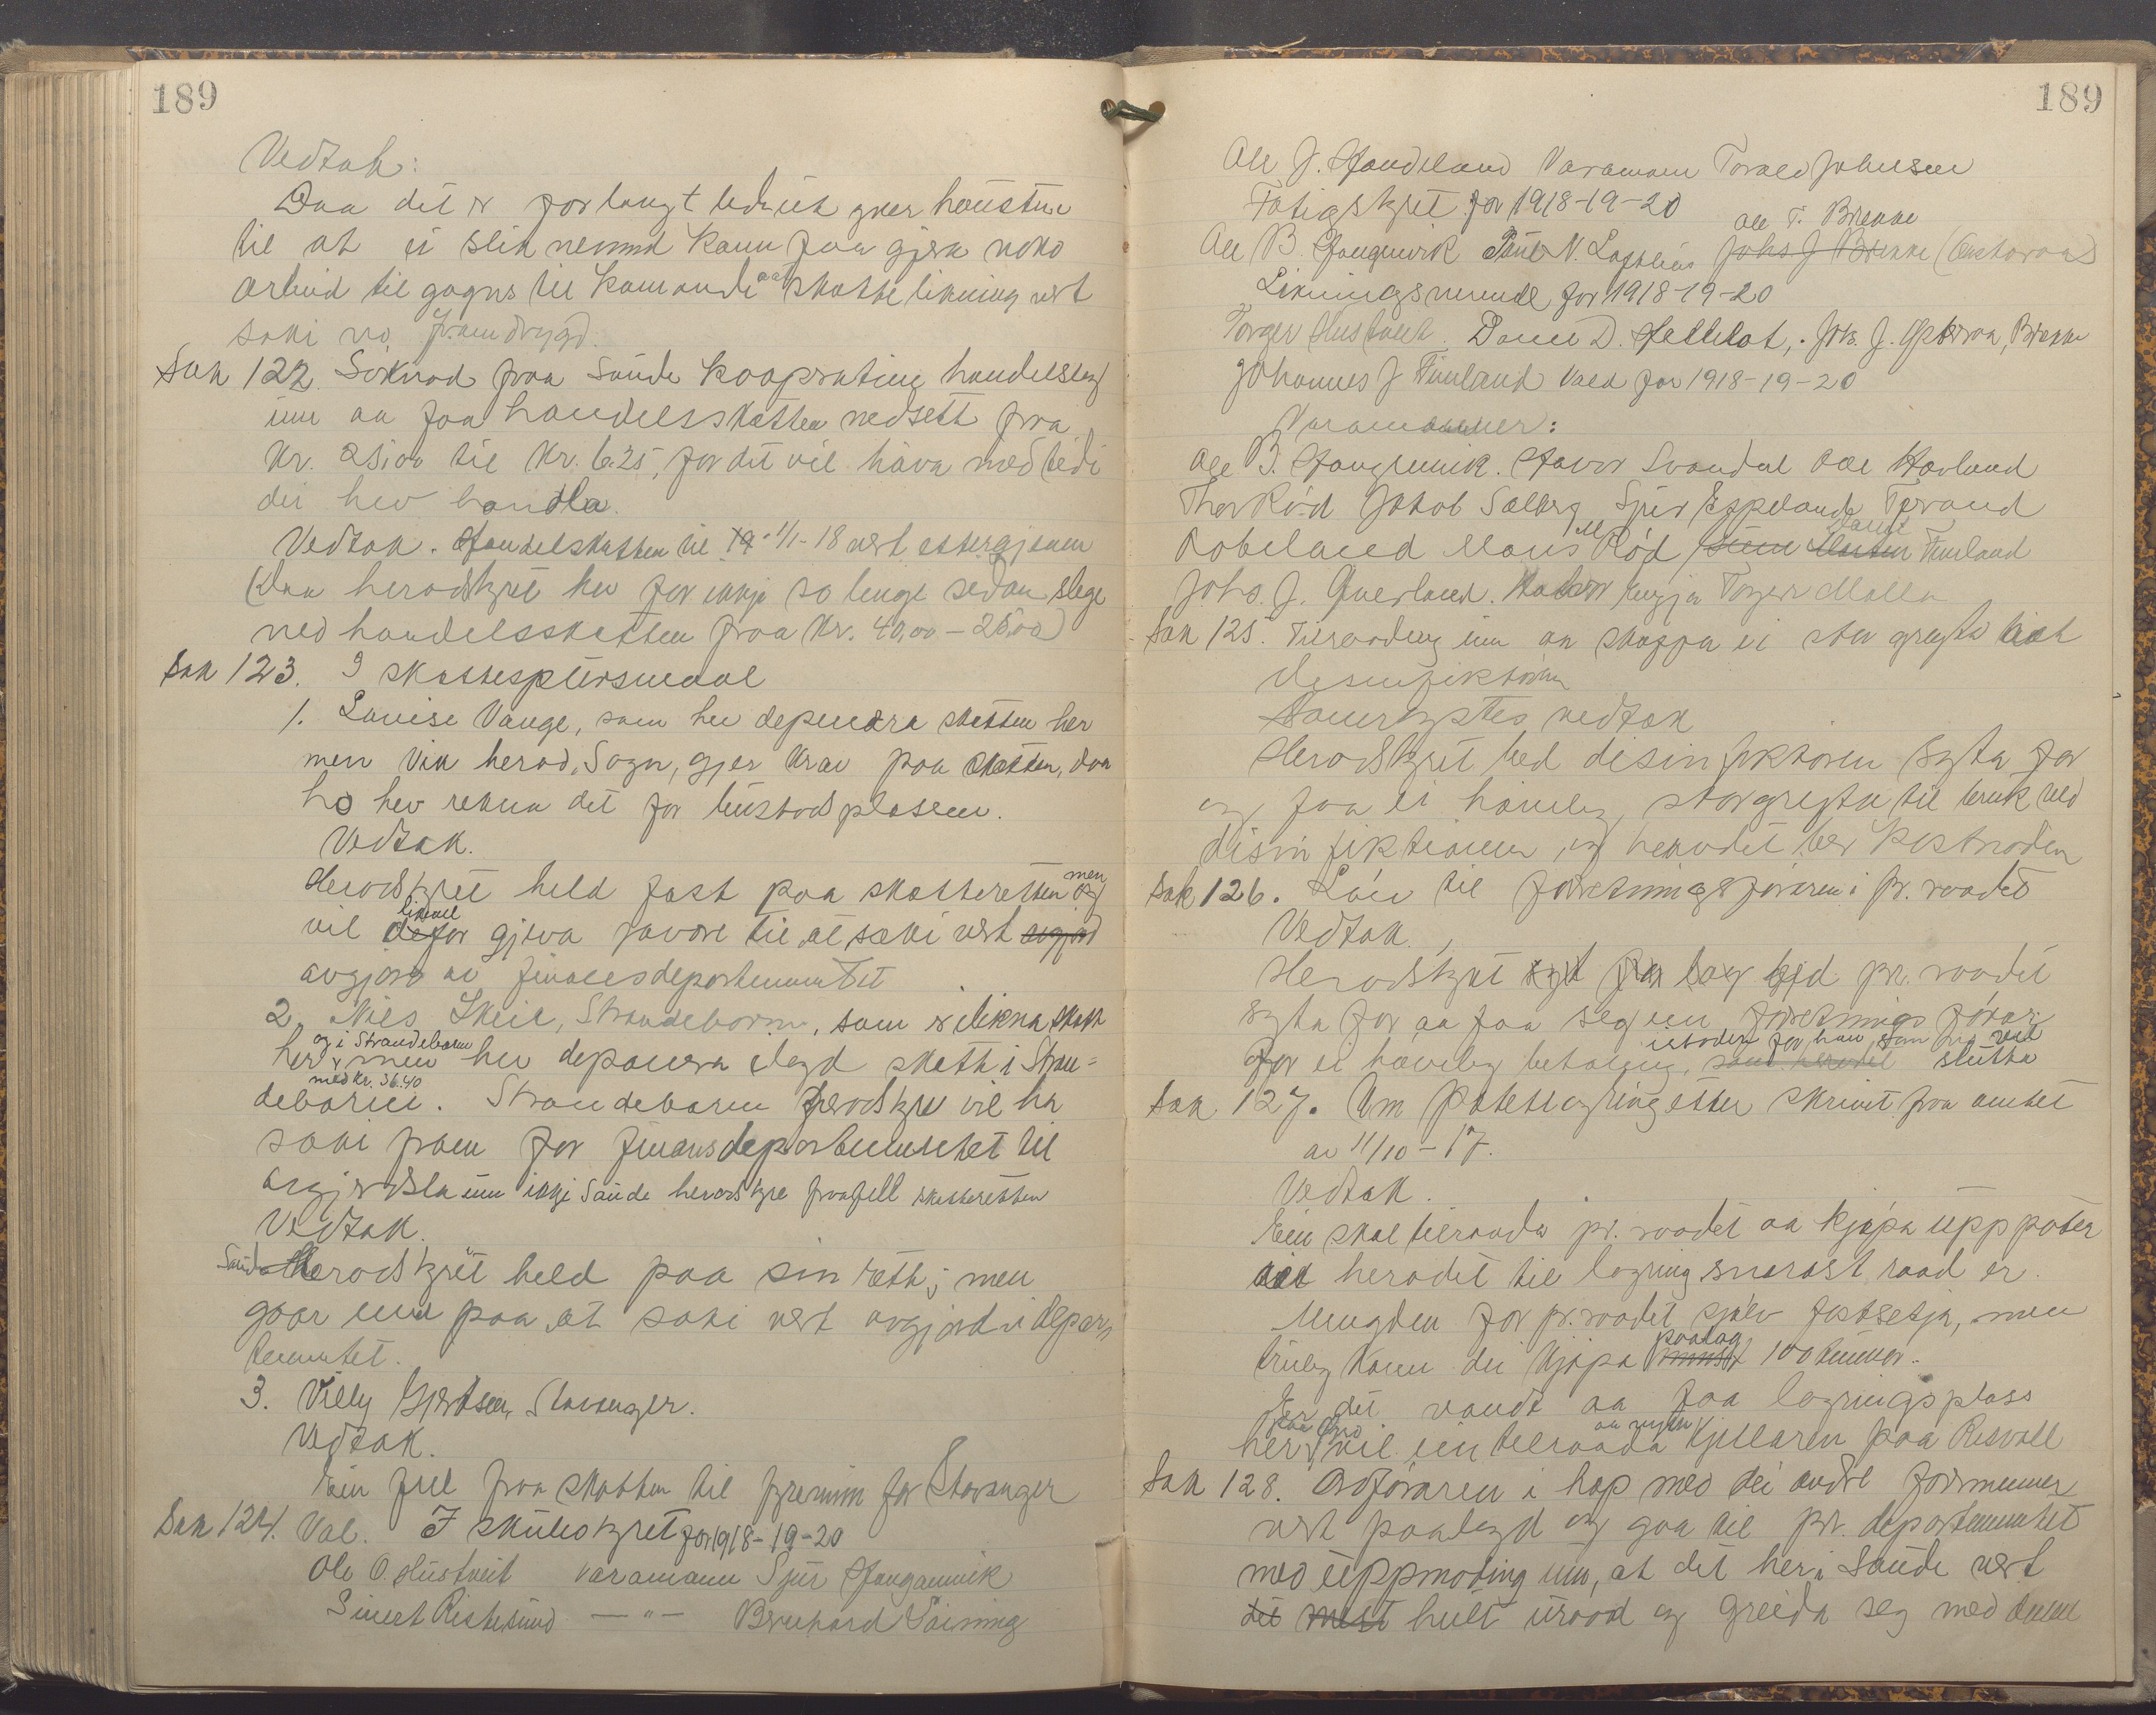 189
Vedtak:
Daa det er for langt lide ut yver haustum
til at ei slik nemnd kann faa gjera noko
arbeid til gagns til komande aar skattelikning vert
saki no framdrygd.
Sak 122. Söknad fraa Saude kooprative handelslag
um aa faa handelsskatten nedsett fraa
kr. 25,00 til kr. 6.25, for det vil hava med tidi
dei hev handla.
Vedtak. Handelskatten til 1/1-18 vert ettergjeven
(Daa heradstyret hev for ikkje so lenge sedan slege
ned handelsskatten fraa kr. 40,00 - 25,00)
Sak 123. I skattespursmaal
1. Lovise Vange, som hev deponera skatten her
men Vik herad, Sogn, gjer krav paa skatten, daa
ho hev rekna det for bustadsplassen.
Vedtak.
Heradstyret held fast paa skatteretten men
vil likevel gjeva javord til at saki vert avgjord
avgjord av finansdepartementet
2. Nils Skeie, Strandebarm, som er likna skatt
her og i Strandebarm men hev deponera ilagd skatt i Stran=
debarm med kr. 36.40. Strandebarm heradstyre vil ha
saki fram for finansdepartementet til
avgjerdsla um ikkje Saude heradstyre fraafell skatteretten
Vedtak.
Saude Heradstyret held paa sin rett; men
gaar inn paa, at saki vert avgjord i depar
tementet.
3. Villy Gjertsen, Stavanger.
Vedtak.
Ein fell fraa skatten til fyremun for Stavanger
Sak 124. Val. I skulestyret for 1918-19-20
Ole O. Hustveit varamann Sjur Hanganvik
Sivert Risbesund — " — Bernhard Vaining
189
Ole J. Handeland Varamann Torald Johnsen
Fatigstyret for 1918-19-20
Ole B. Hangenvik Paul N. Löyning Johs J Brekke Ole T. Brekke
Likningsnemnd for 1918-19-20
Torger Hustveit. Daniel D. Hellebot, Johs. J. Brekke
Johannes J Fivelland Vald for 1918-19-20
Varamenner:
Ole B. Hangenvik. Havor Svandal Ole Hovland
Thor Röd Jakob Solberg Sjur Espeland Torand
Aabeland Mons M Röd Fivelland
Johs. J. Querland. Torger Molla
Sak 125. Tilraading um aa skaffa ei stor gryta aat
desinfiktören
Samrøystes vedtak
Heradstyret bed disinfiktören syta for
og faa ei höveleg storgryta til bruk ved
disinfiktionen, og heradet ber kostnaden
Sak 126. Lön til forretningsföraren i pr. raadet
Vedtak.
Heradstyret bed pr. raadet
syta for aa faa seg ein forretningsförar
for ei höveleg betaling, istaden for han, som no vil slutta
Sak 127. Um potetlagring etter skrivet fraa amtet
av 11/10-17.
Vedtak.
Ein skal tilraada pr. raadet aa kjöpa upp poter
aat heradet til lagring snarast raad er.
Mengden for pr. raadet sjölv fastsetja, men
truleg kann dei kjöpa paalag 100 tunnor.
Er det vandt aa faa lagringsplass
her paa Øyro vil ein tilraada aa nytta kjellaren paa Risvoll
Sak 128. Ordföraren i hop med dei andre formenner
vert paalagd og gaa til pr. departementet
med uppmoding um, at det her i Saude vert
det mest heilt uraad og greida seg med